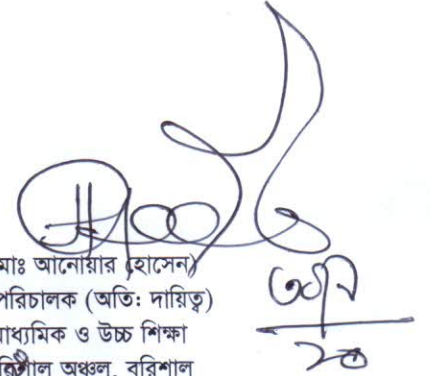 মাঃ আনোয়ার হোসেন)
পরিচালক (অতি: দায়িত্ব)
াধ্যমিক ও উচ্চ শিক্ষা
বরিশাল অঞ্চল, বরিশাল